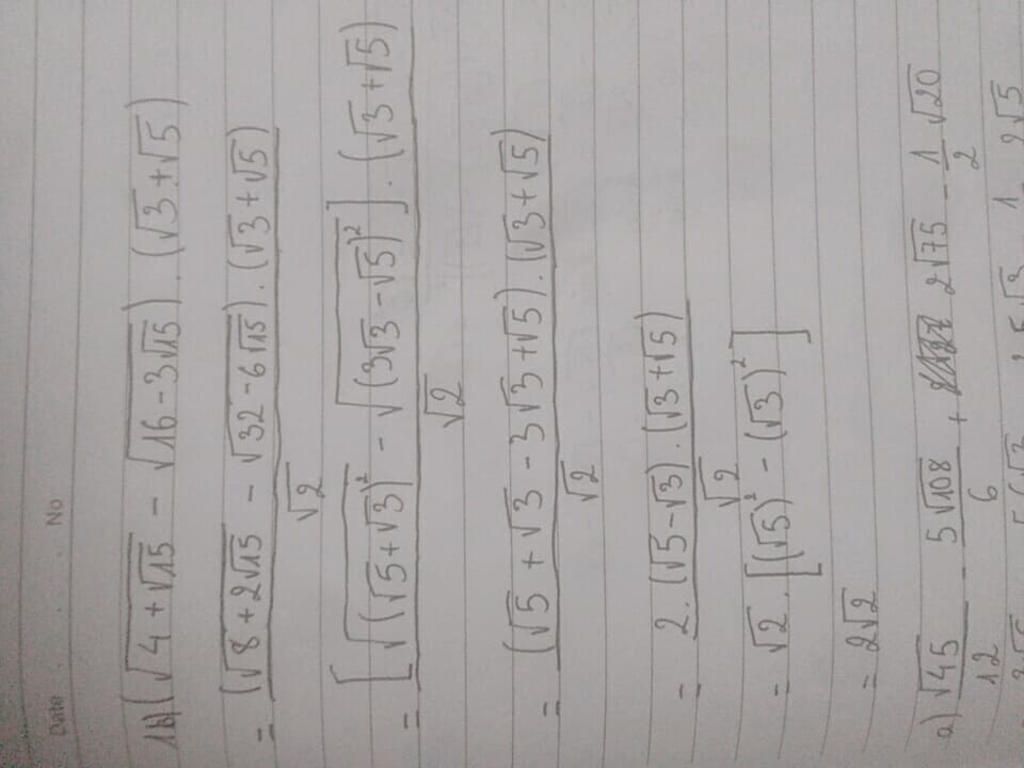 Date . . . . No
1b) (√4+√15 - √16-3√15) . (√3+√5)
= (√8+2√15 - √32-6√15) . (√3+√5)
√2
= [√(√5+√3)² - √(3√3-√5)²] . (√3+√5)
√2
= (√5+√3-3√3+√5) . (√3+√5)
√2
= 2.(√5-√3).(√3+√5)
√2
= √2.[(√5)²-(√3)²]
= 2√2
a) √45/12 - 5√108/6 + 2√75 - 1/2 √20
2√5